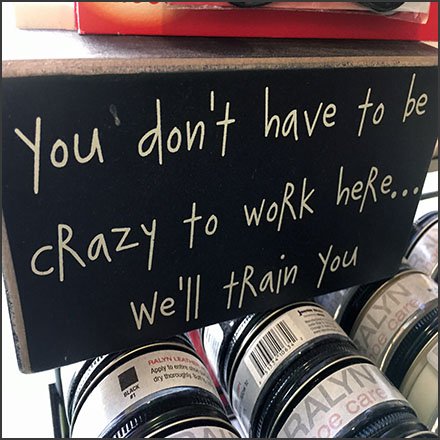 You don't have to be
crazy to work here...
we'll train you
RALYN LEATHER
Apply to entire
dry thoroughly,
BLACK
#1
RALYN
oe care
RALYN
oe care